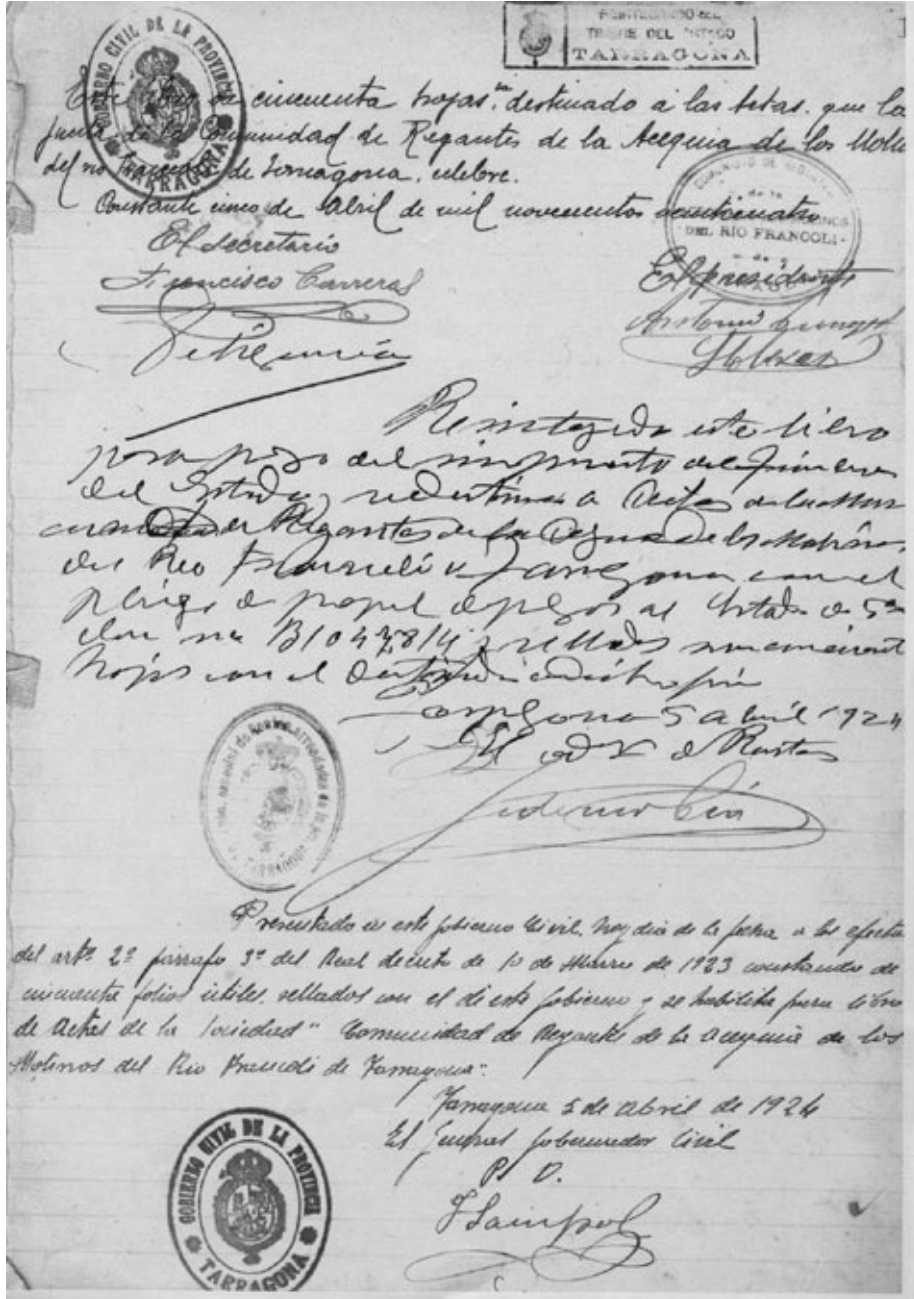 GOBIERNO CIVIL DE LA PROVINCIA
TARRAGONA
REINTEGRADO DEL
TIMBRE DEL ESTADO
TARRAGONA
Este de cincuenta hojas destinado a las actas que la
junta de la Comunidad de Regantes de la Acequia de los Moli
del rio de Tarragona, celebre.
Constante cinco de Abril de mil novecientos veinticuatro
COMUNIDAD DE REGANTES
de la
DEL RIO FRANCOLI
El Secretario
Francisco Carreras
El presidente
Antonio
Reintegrado este libro
para pago del impuesto del timbre
del Estado y destina a Actas de la
de Regantes de la Acequia de los Molinos
del Rio Francolí de Tarragona con el
pliego de papel de pagos al Estado de 5ª
clase nº B1047,814 y sellados
hojas con el
Tarragona 5 abril 1924
El de Rentas
Federico
TARRAGONA
Presentado en este Gobierno Civil, hoy dia de la fecha a los efectos
del artº 2º párrafo 3º del Real decreto de 10 de Marzo de 1923 constando de
cincuenta folios útiles, sellados con el de este Gobierno y se habilita para libro
de Actas de la Sociedad "Comunidad de Regantes de la acequia de los
Molinos del Rio Francoli de Tarragona".
Tarragona 5 de Abril de 1924
El General Gobernador Civil
P. D.
GOBIERNO CIVIL DE LA PROVINCIA
TARRAGONA